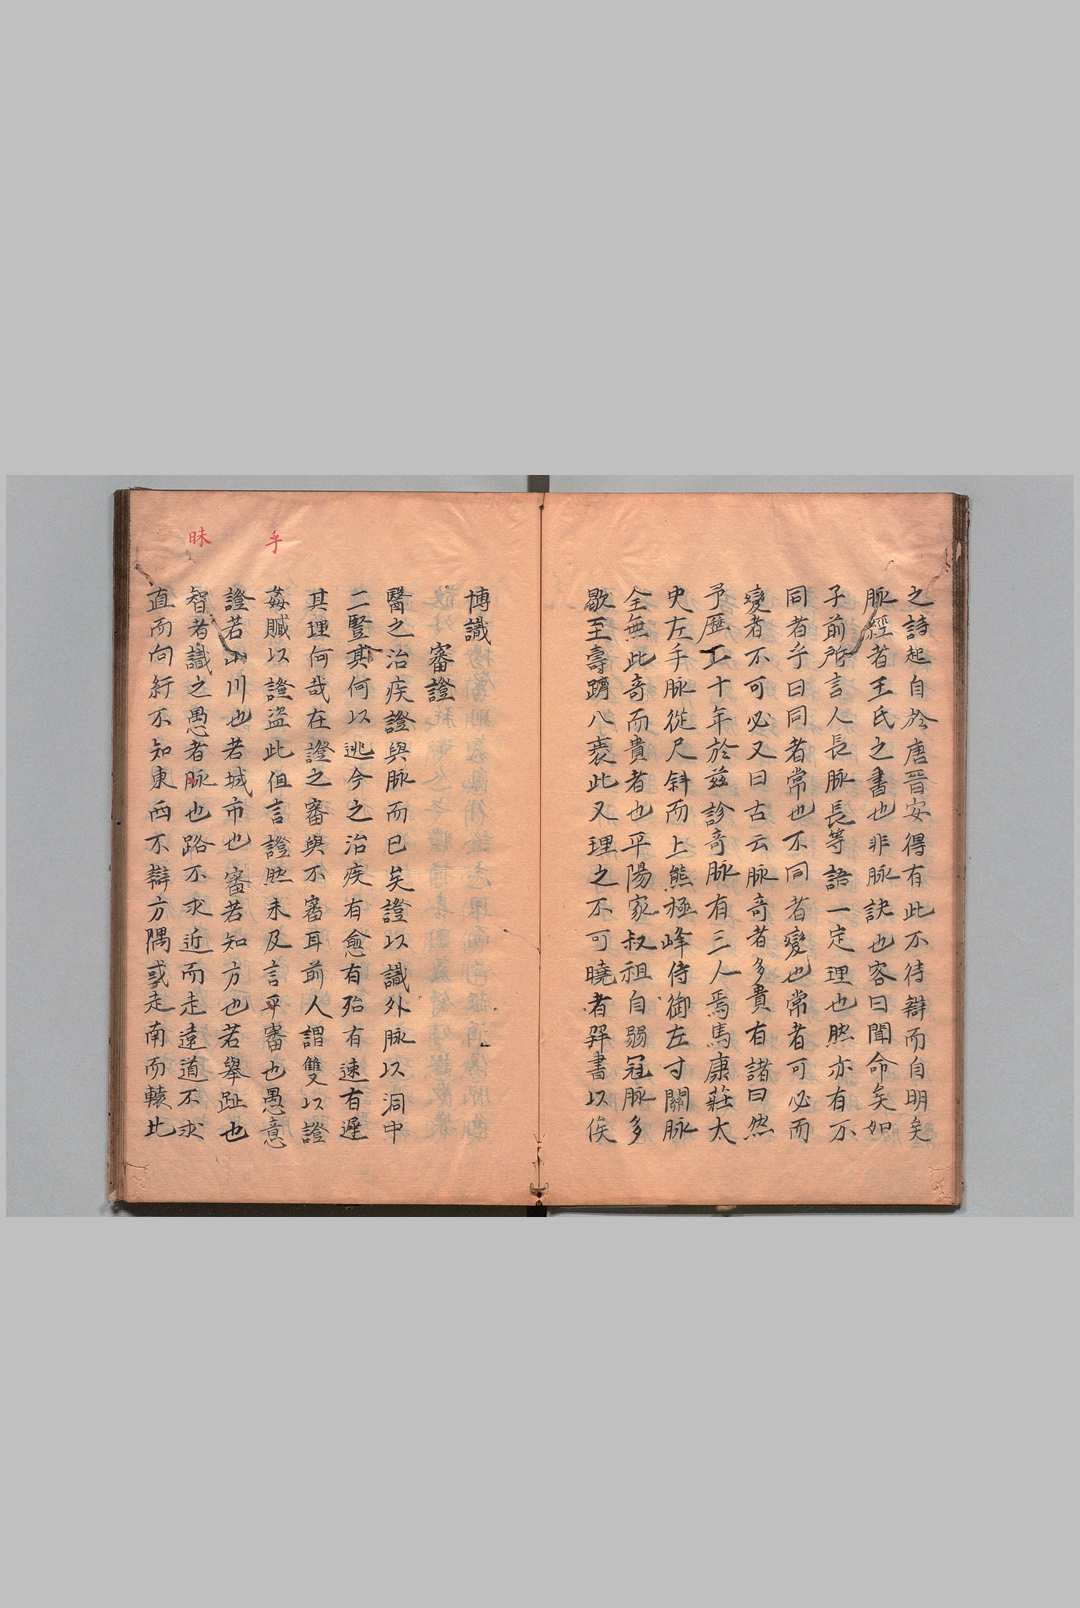 之詩起自於唐晉安得有此不待辯而自明矣
脉經者王氏之書也非脉訣也客曰聞命矣如
子前所言人長脉長等語一定理也然亦有不
同者乎曰同者常也不同者變也常者可必而
變者不可必又曰古云脉奇者多貴有諸曰然
予歷工十年於兹診奇脉有三人焉馬康莊太
史左手脉從尺斜而上熊極峰侍御左寸關脉
全無此奇而貴者也平陽家叔祖自弱冠脉多
歇至壽躋八袠此又理之不可曉者筆書以俟
博識
審證
醫之治疾證與脉而已矣證以識外脉以洞中
二豎其何以逃今之治疾有愈有殆有速有遲
其理何哉在證之審與不審耳前人謂雙以證
姦贓以證盜此但言證然未及言乎審也愚意
證若山川也若城市也審若知方也若舉趾也
智者識之愚者脉也路不求近而走遠道不求
直而向紆不知東西不辯方隅或走南而轅北
乎
昧